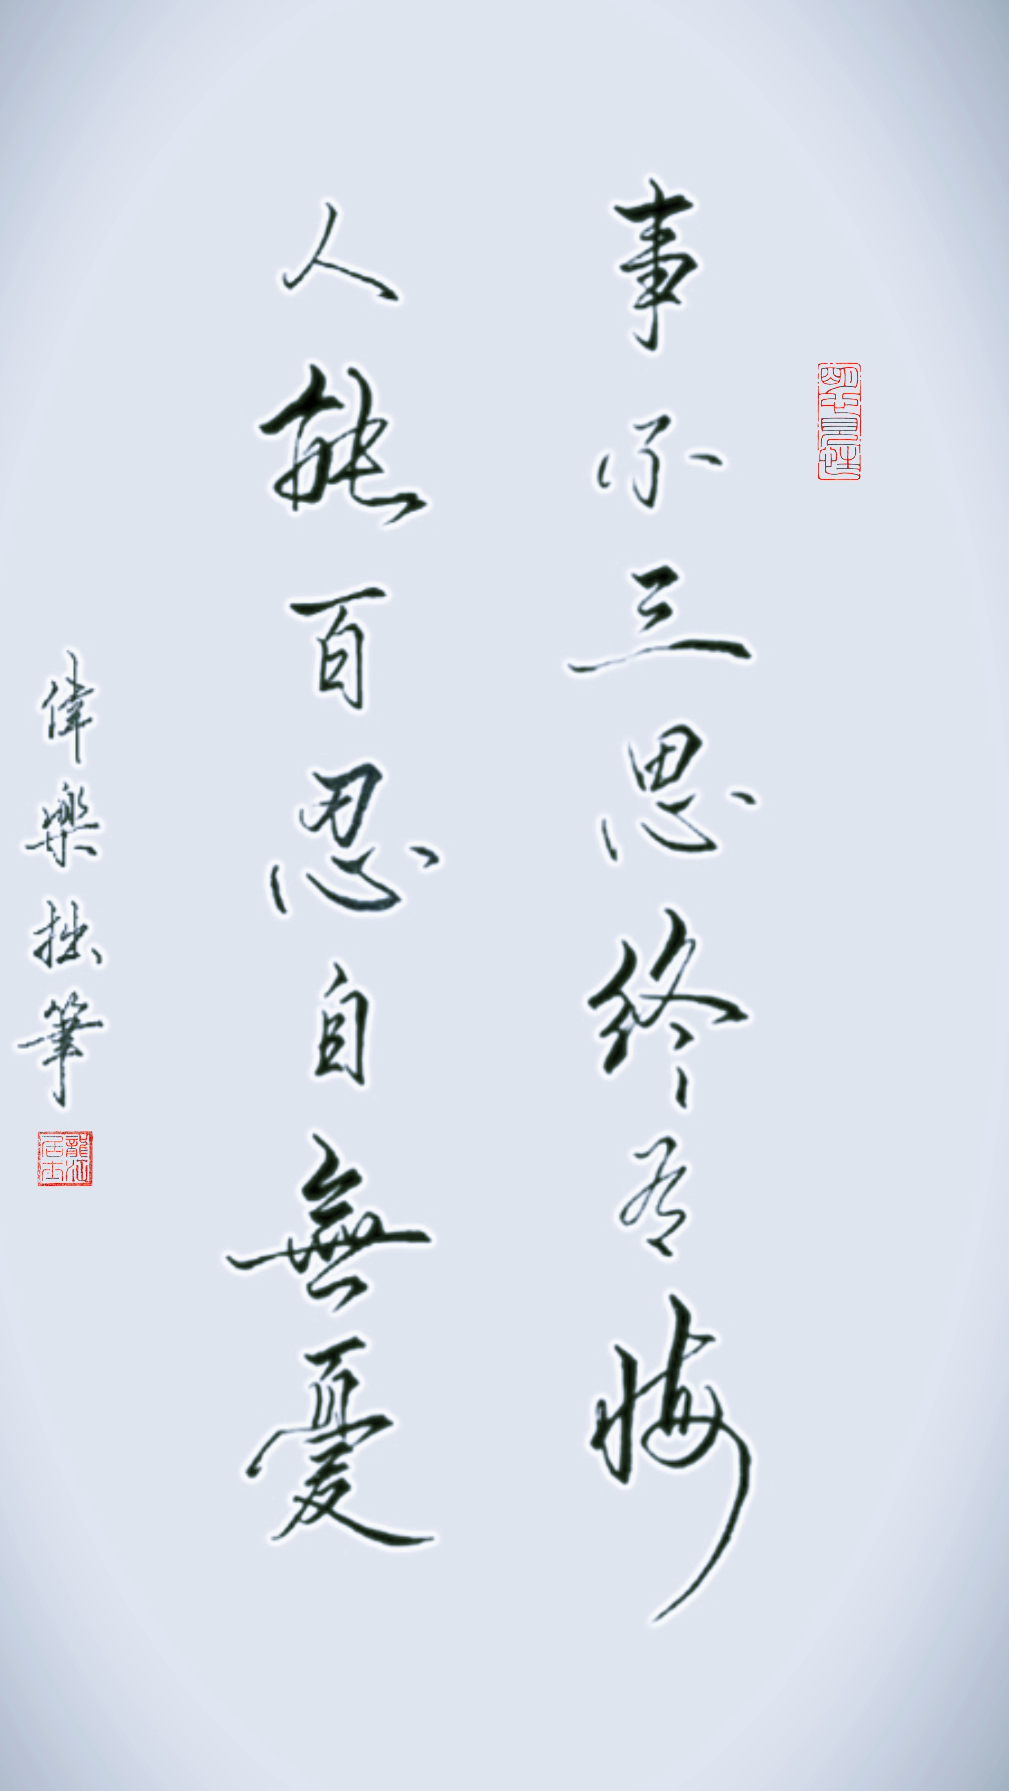 事不三思終有悔
人能百忍自無憂
偉樂拙筆